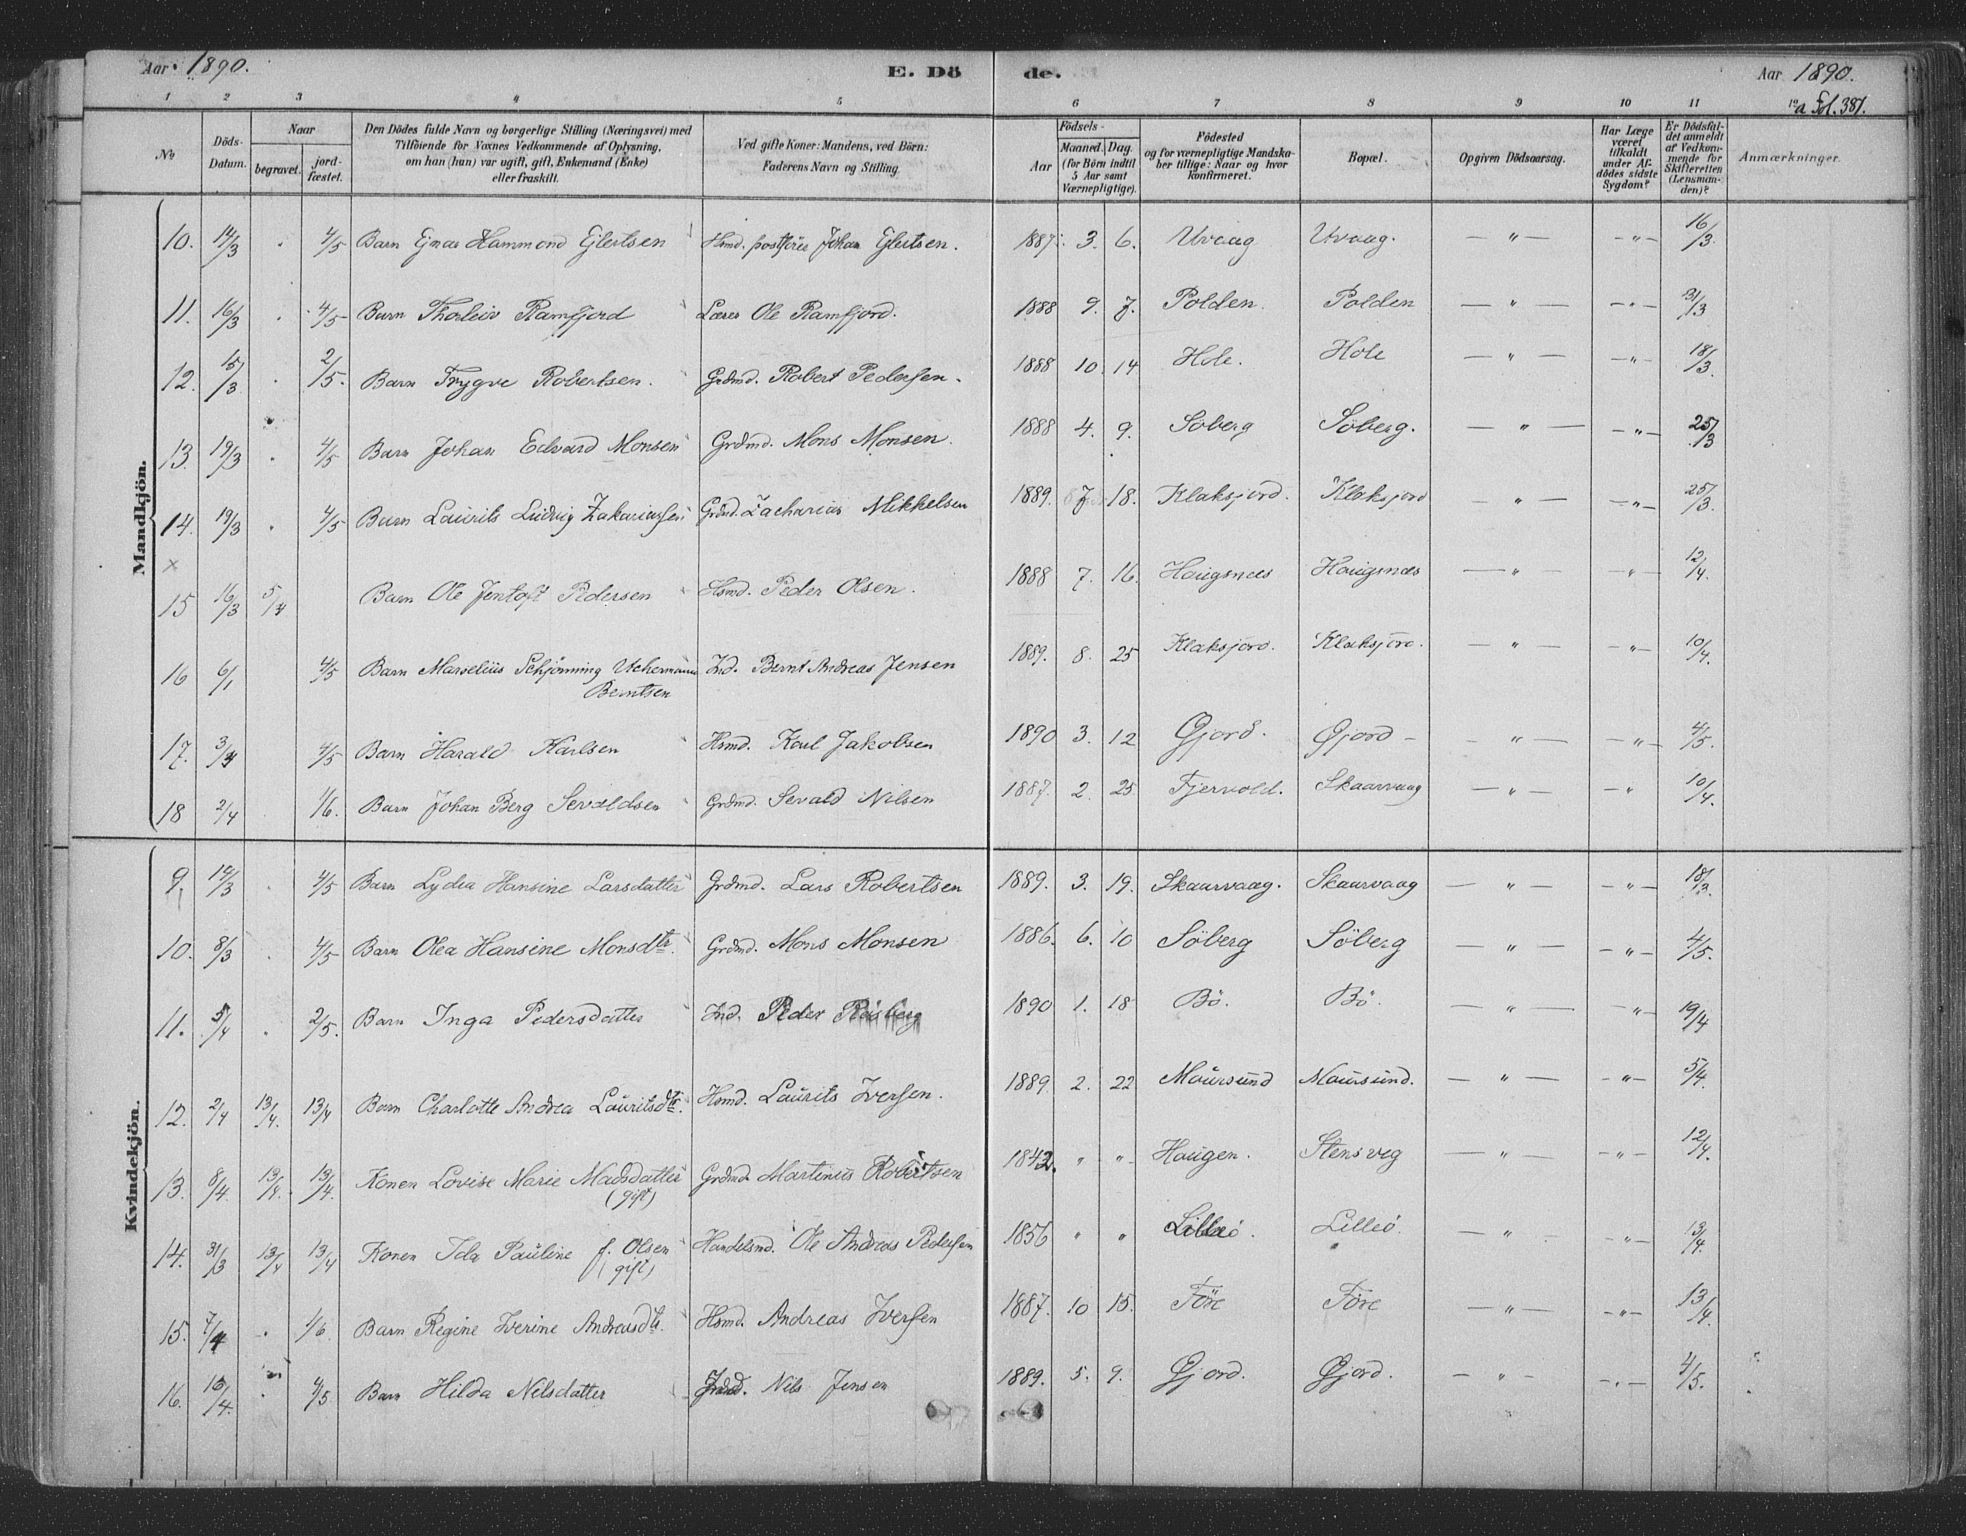 Aar 1890.
E. Dö
de.
Aar 1890.
1 2 3 4 5 6 7 8 9 10 11 12
a Fol. 381.
No
Döds-Datum.
Naar
begravet.
jordfæstet.
Den Dödes fulde Navn og borgerlige Stilling (Næringsvei) med
Tilföiende for Voxnes Vedkommende af Oplysning,
om han (hun) var ugift, gift, Enkemand (Enke)
eller fraskilt.
Ved gifte Koner: Mandens, ved Börn:
Faderens Navn og Stilling.
Födsels-
Aar
Maaned. Dag.
(for Börn indtil
5 Aar samt
Værnepligtige).
Födested
og for værnepligtige Mandska-
ber tillige: Naar og hvor
konfirmeret.
Bopæl.
Opgiven Dödsaarsag.
Har Læge
været
tilkaldt
under Af-
dödes sidste
Sygdom?
Er Dödsfal-
det anmeldt
af Vedkom-
mende for
Skifteretten
(Lensman-
den)?
Anmærkninger.
Mandkjön.
10. 14/3 " 4/5 Barn Ejnar Hammond Ejlertsen Hsmd. postförer Johan Ejlertsen. 1887. 3. 6. Uvaag Uvaag. — " — - " - 16/3.
11. 16/3 . 4/5 Barn Thorleiv Ramfjord Lærer Ole Ramfjord. 1888 9. 7. Polden. Polden — " — - " - 21/3
12. 15/3 . 2/5. Barn Trygve Robertsen. Grdmd. Robert Pedersen. 1888 10. 14 Hole. Hole — " — - " - 18/3.
13. 19/3 . 4/5 Barn Johan Edvard Monsen Grdmd. Mons Monsen. 1888 4. 9. Söberg Söberg. — " — - " - 25/3
14. 19/3 . 4/5 Barn Laurits Ludvig Zakariassen Grdmd. Zacharias Mikkelsen 1889. 7 18. Klaksjord. Klaksjord — " — - " - 25/3.
x
15 16/3 5/4 Barn Ole Jentoft Pedersen Hsmd. Peder Olsen. 1888 7. 16. Haugsnes Haugsnæs — " — " 12/4.
16 6/1 4/5 Barn Marselius Schjönning Uchermann Ind. Bernt Andreas Jensen 1889. 8. 25 Klaksjord. Klaksjord. — " — - " - 10/4.
Berntsen
17. 3/4 4/5 Barn Harald Karlsen Hsmd. Karl Jakobsen 1890 3. 12 Gjord. Gjord — " — - " - 4/5.
18 2/4 1/6. Barn Johan Berg Sevaldsen Grdmd. Sevald Nilsen 1887. 2. 25 Fjervold. Skaarvaag — " — " 10/4.
Kvindekjön.
9. 14/3 . 4/5 Barn Lydea Hansine Larsdatter Grdmd. Lars Robertsen 1889. 3. 19. Skaarvaag. Skaarvaag — " — - " - 18/3.
10. 8/3 . 4/5 Barn Olea Hansine Monsdtr. Grdmd. Mons Monsen 1886. 6. 10 Söberg Söberg — " — - " - 4/5.
11. 5/4 . 2/5. Barn Inga Pedersdatter Ind. Peder 1890 1. 18 Bö. Bö. — " — " 19/4
12. 2/4 13/4. 13/4 Barn Charlotte Andrea Lauritsdtr. Hsmd. Laurits Iversen. 1889. 2. 22 Maursund Maursund. — " — - " - 5/4.
13. 8/4. 13/4. 13/4. Konen Lovise Marie Madsdatter Grdmd. Martinus Robertsen 1842. " " Haugen. Stensveg — " — " 12/4.
(gift)
14. 31/3 13/4 13/4 Konen Ida Pauline f. Olsen Handelsmd. Ole Andreas Pedersen 1856 " " Lilleö. Lilleö — " — - " - 13/4.
(gift)
15. 7/4 . 1/6. Barn Regine Iverine Andreasdtr. Hsmd. Andreas Iversen 1887. 10 15. Före Före — " — - " - 13/4.
16. 10/4. . 4/5 Barn Hilda Nilsdatter Nils Jensen 1889. 5. 9. Gjord. Gjord. — " - - " - 4/5.